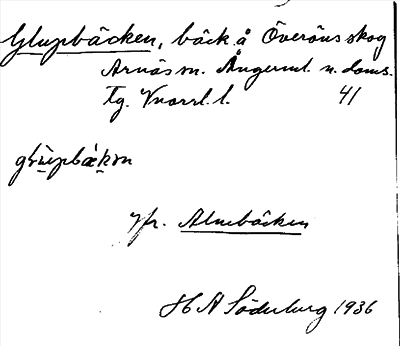 Glupbäcken, bäck å Överöns skog
Arnäs sn. Ångerml. n. doms.
Tg. Vnorrl. l. 41
glùpbækən
Jfr. Alnebäcken
H A Söderberg 1936